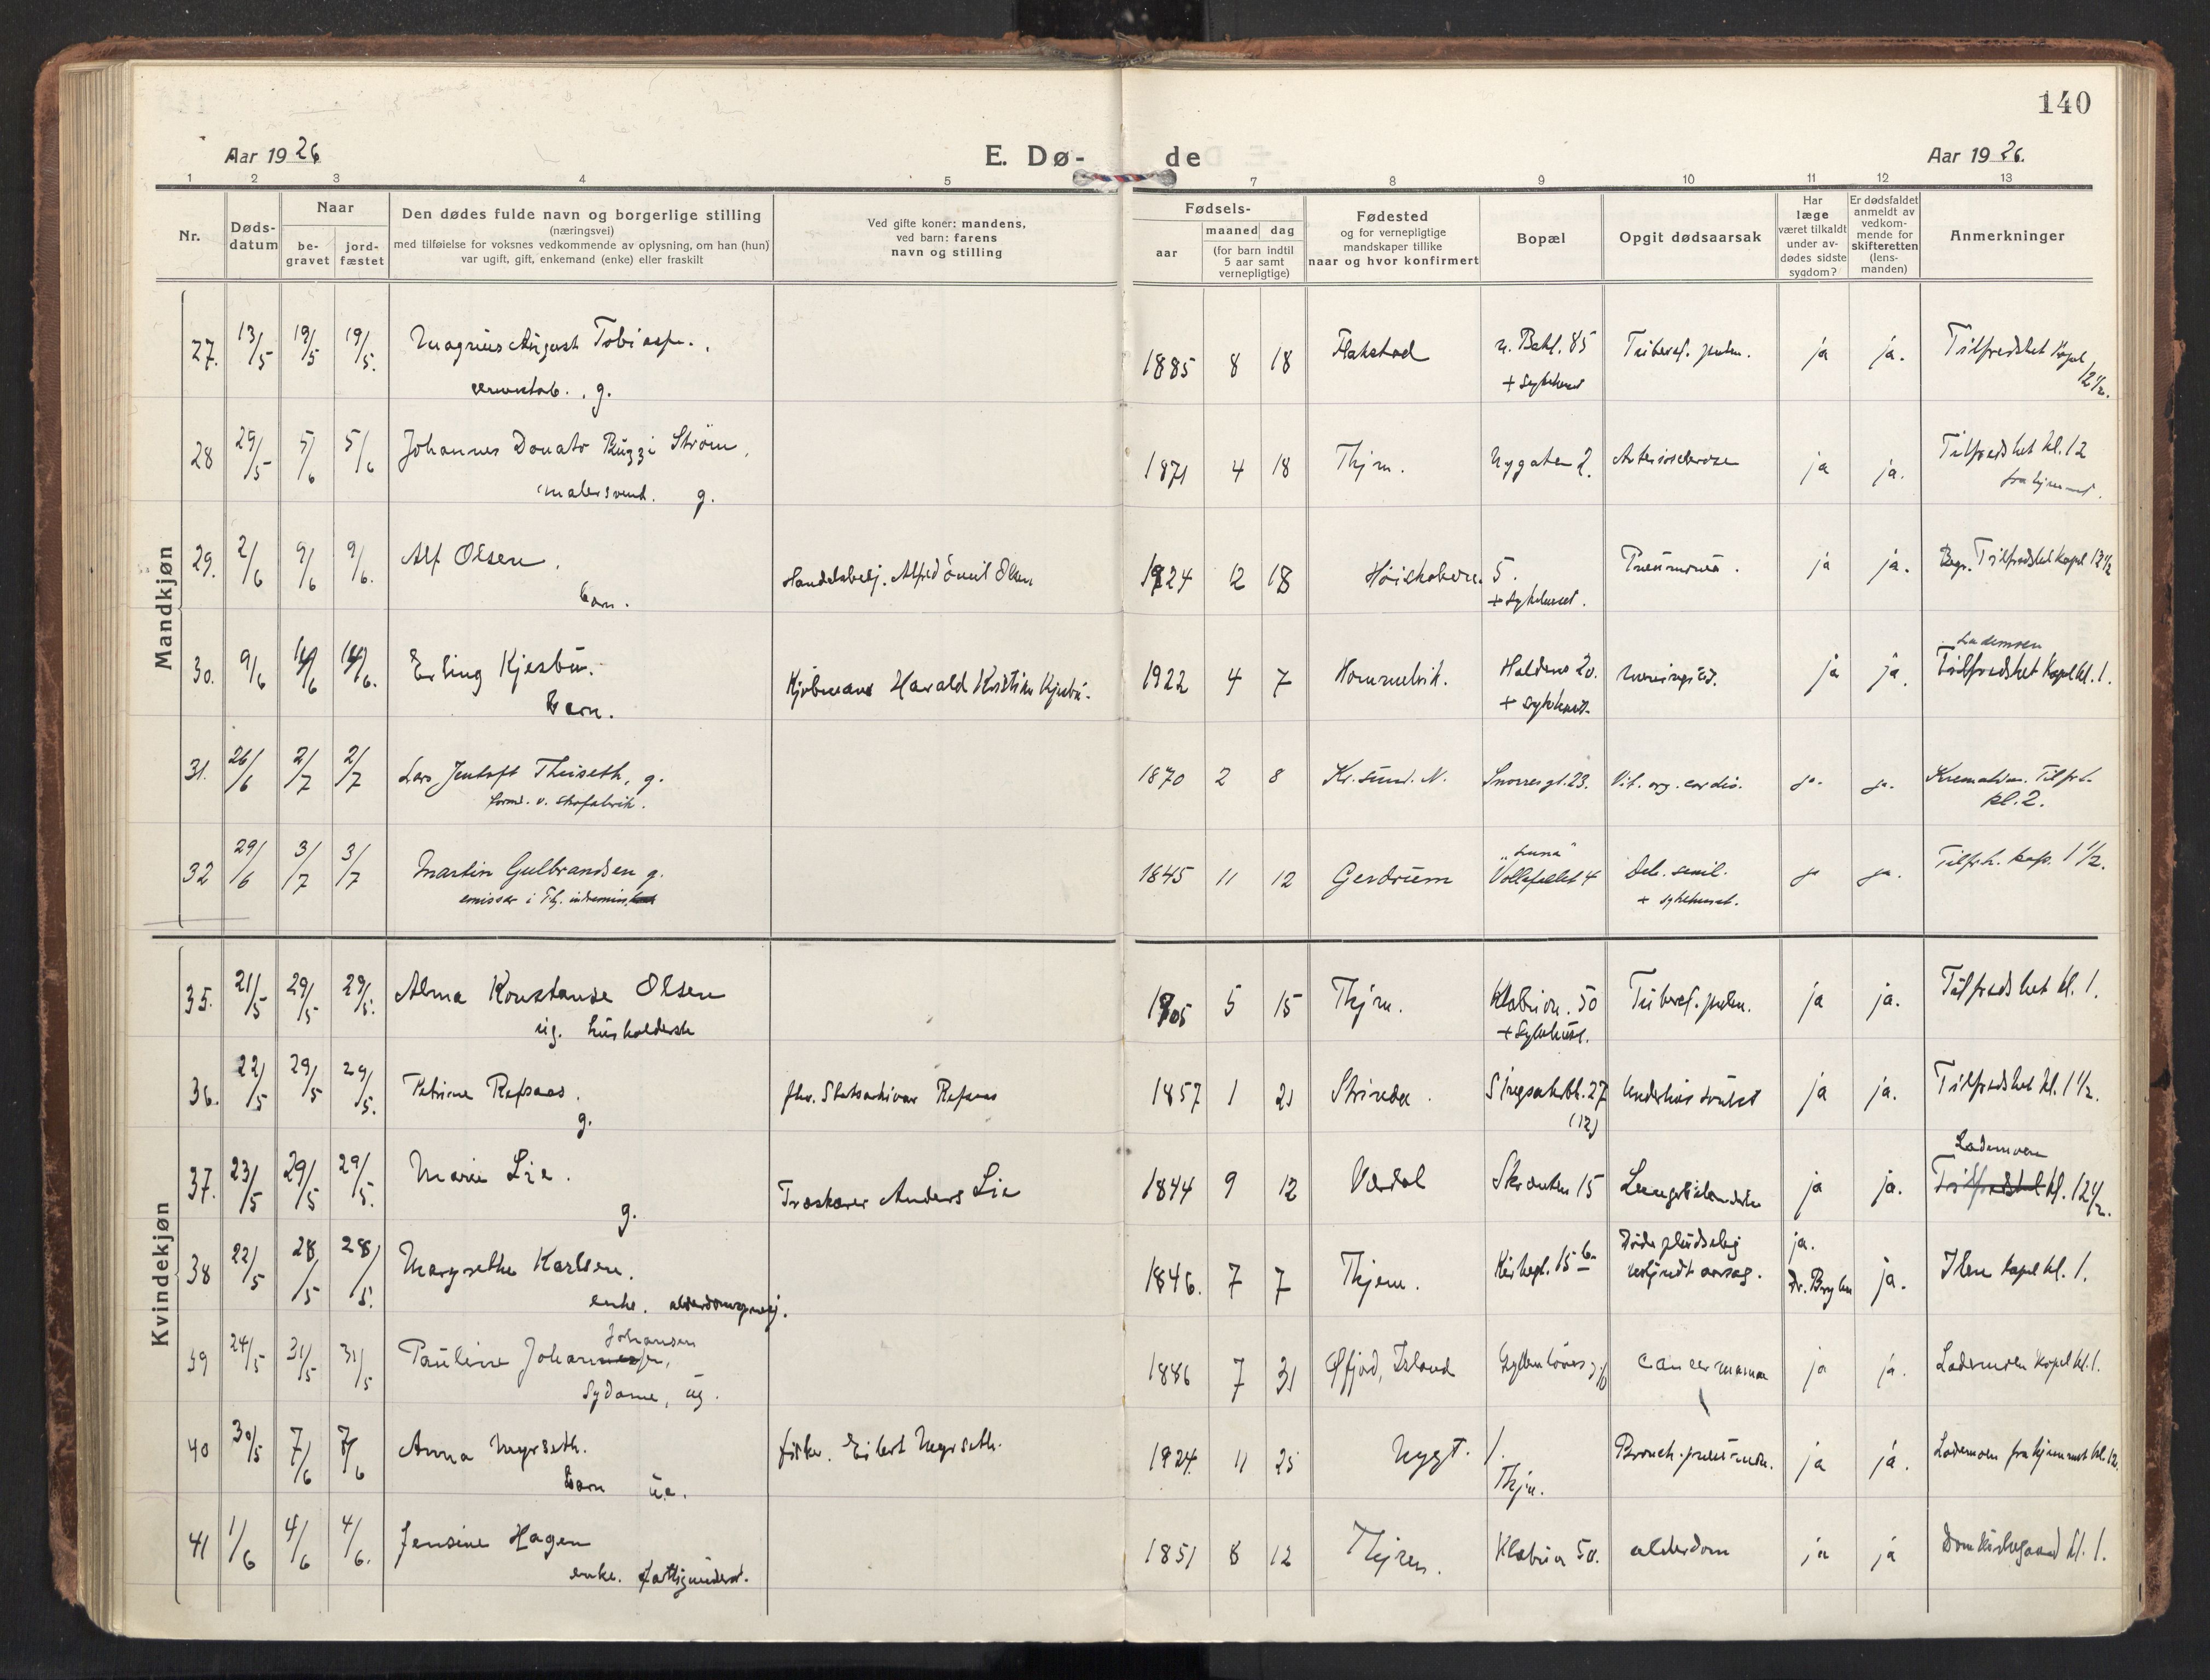 140
Aar 1926
E. Dø-
de
Aar 1926.
1 2 3 4 5 7 8 9 10 11 12 13
Nr.
Døds-
datum
Naar
be-
gravet
jord-
fæstet
Den dødes fulde navn og borgerlige stilling
(næringsvei)
med tilføielse for voksnes vedkommende av oplysning, om han (hun)
var ugift, gift, enkemand (enke) eller fraskilt
Ved gifte koner: mandens,
ved barn: farens
navn og stilling
Fødsels-
aar
maaned dag
(for barn indtil
5 aar samt
vernepligtige)
Fødested
og for vernepligtige
mandskaper tillike
naar og hvor konfirmert
Bopæl
Opgit dødsaarsak
Har
læge
været tilkaldt
under av-
dødes sidste
sygdom?
Er dødsfaldet
anmeldt av
vedkom-
mende for
skifteretten
(lens-
manden)
Anmerkninger
Mandkjøn
27. 13/5 19/5 19/5. Magnus August Tobiass. 1885 8 18 Flakstad n. Bakl. 85 Tubercl. pulm. ja ja. Tilfredshet Kapel 12 1/2.
g. + Sykehuset
28 29/5 5/6 5/6 Johannes Donato Buggi Strøm, 1871 4 18 Thjm. Nygaten 2. Arteriosclerose ja ja. Tilfredshet kl. 12
malersvend. g. fra hjemmet.
29. 2/6 9/6 9/6. Alf Olsen, Handelsbetj. Alfred Emil Olsen 1924 12 18 Høiskolevn. 5. Pneumonia. ja ja. Tilfredshet kapel 12 1/2
barn. + Sykehuset.
30. 9/6 14/6 14/6. Erling Kjesbu. Kjøbmand Harald Kristian Kjesbu. 1922 4 7 Hommelvik. ja ja. Lademoen Tilfredshet Kapel kl. 1.
Barn. + Sykehuset.
31. 26/6 2/7 2/7 Lars Jentoft Thiiseth, g. 1870 2 8 Kr.sund. N. Snorresgt. 23. Vit. org. cordis. ja. ja. Kremation. Tilfrh.
form. v. skofabrik. kl. 2.
32 29/6 3/7 3/7 Martin Gulbrandsen g. 1845 11 12 Gerdrum Vollafallet 4 Deb. senil. ja ja. Tilfrh. kap. 1 1/2.
emissær i Thj. indremis. + sykehuset.
Kvindekjøn
35. 21/5 29/5 29/5. Alma Konstanse Olsen 1905 5 15 Thjm. Klæbuv. 50 Tubercl. pulm. ja ja. Tilfredshet kl. 1.
ug. husholderske + Sykehuset.
36. 22/5 29/5 29/5. Petrine Rafsaas. fhv. Statsarkivar Rafsaas 1857 1 21 Strinda. 27 ja ja. Tilfredshet kl. 1 1/2.
g. (12)
37. 23/5 29/5 29/5. Marie Lie. Træskjærer Anders Lie 1844 9 12 Verdal Skrænten 15 ja ja. Lademoen Tilfredshet kl. 12 1/2.
g.
38 22/5 28/5 28/5. Margrethe Karlsen. 1846. 7 7 Thjem. Kirkegt. 15 b Døde pludselig ja. ja. Ilen kapel kl. 1.
enke.
39 24/5 31/5 31/5 Pauline Johannesen, Johansen 1886 7 31 Øfjord, Island cancer mamma ja ja. Lademoen kapel kl. 1.
Sydame, ug.
40 30/5 7/6 7/6 Anna Myrseth. fisker. Eilert Myrseth. 1924 11 25 Nygt. 1. Bronch. pneumon. ja ja. Lademoen fra hjemmet kl. 12.
Barn u.e. Thjm.
41 1/6 4/6 4/6. Jensine Hagen 1851 8 12 Thjem. Klæbuv 50. alderdom ja ja Domkirkegaard kl. 1.
enke. fattigunderst.